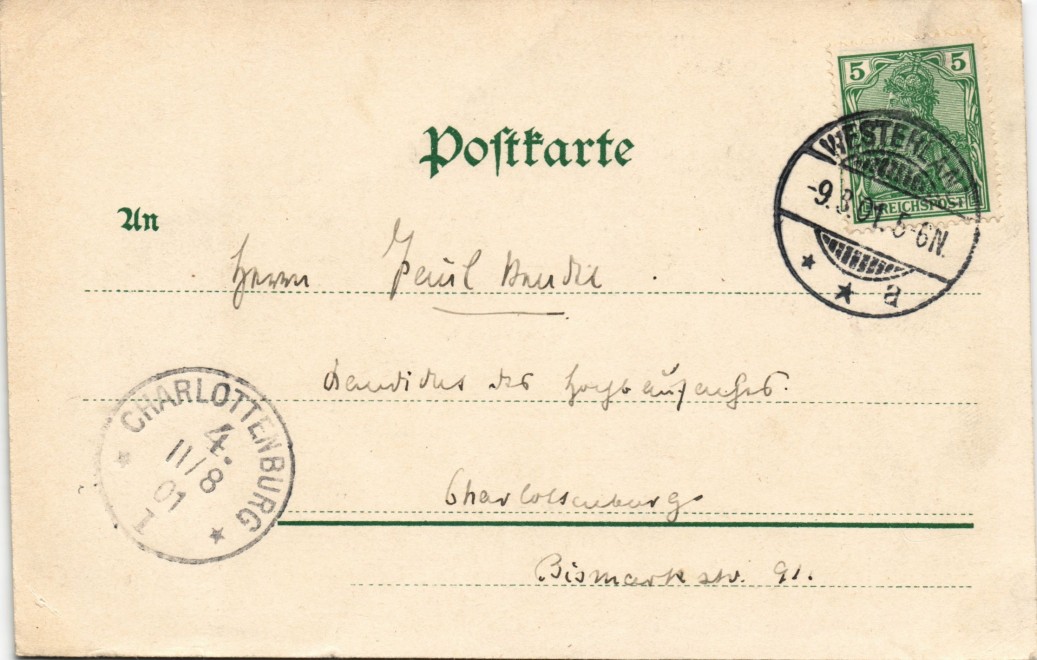 Postkarte
5 5
REICHSPOST
WESTERLAND
-9.8.01. 5-6N.
* * a
An
Herrn Paul
Kandidat des Hochbaufaches.
CHARLOTTENBURG
4.
11/8
01
* 1 *
Charlottenburg
Bismarkstr. 91.